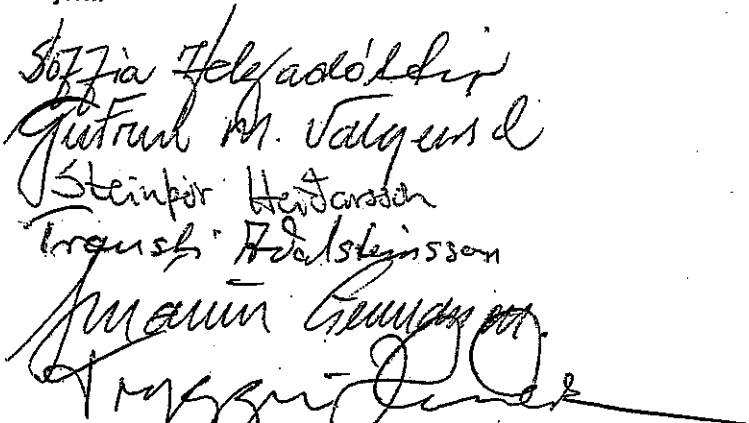 Soffía Helgadóttir
Guðrún M. Valgeirsd
Steinþór Heiðarsson
Trausti Aðalsteinsson
Tryggvi